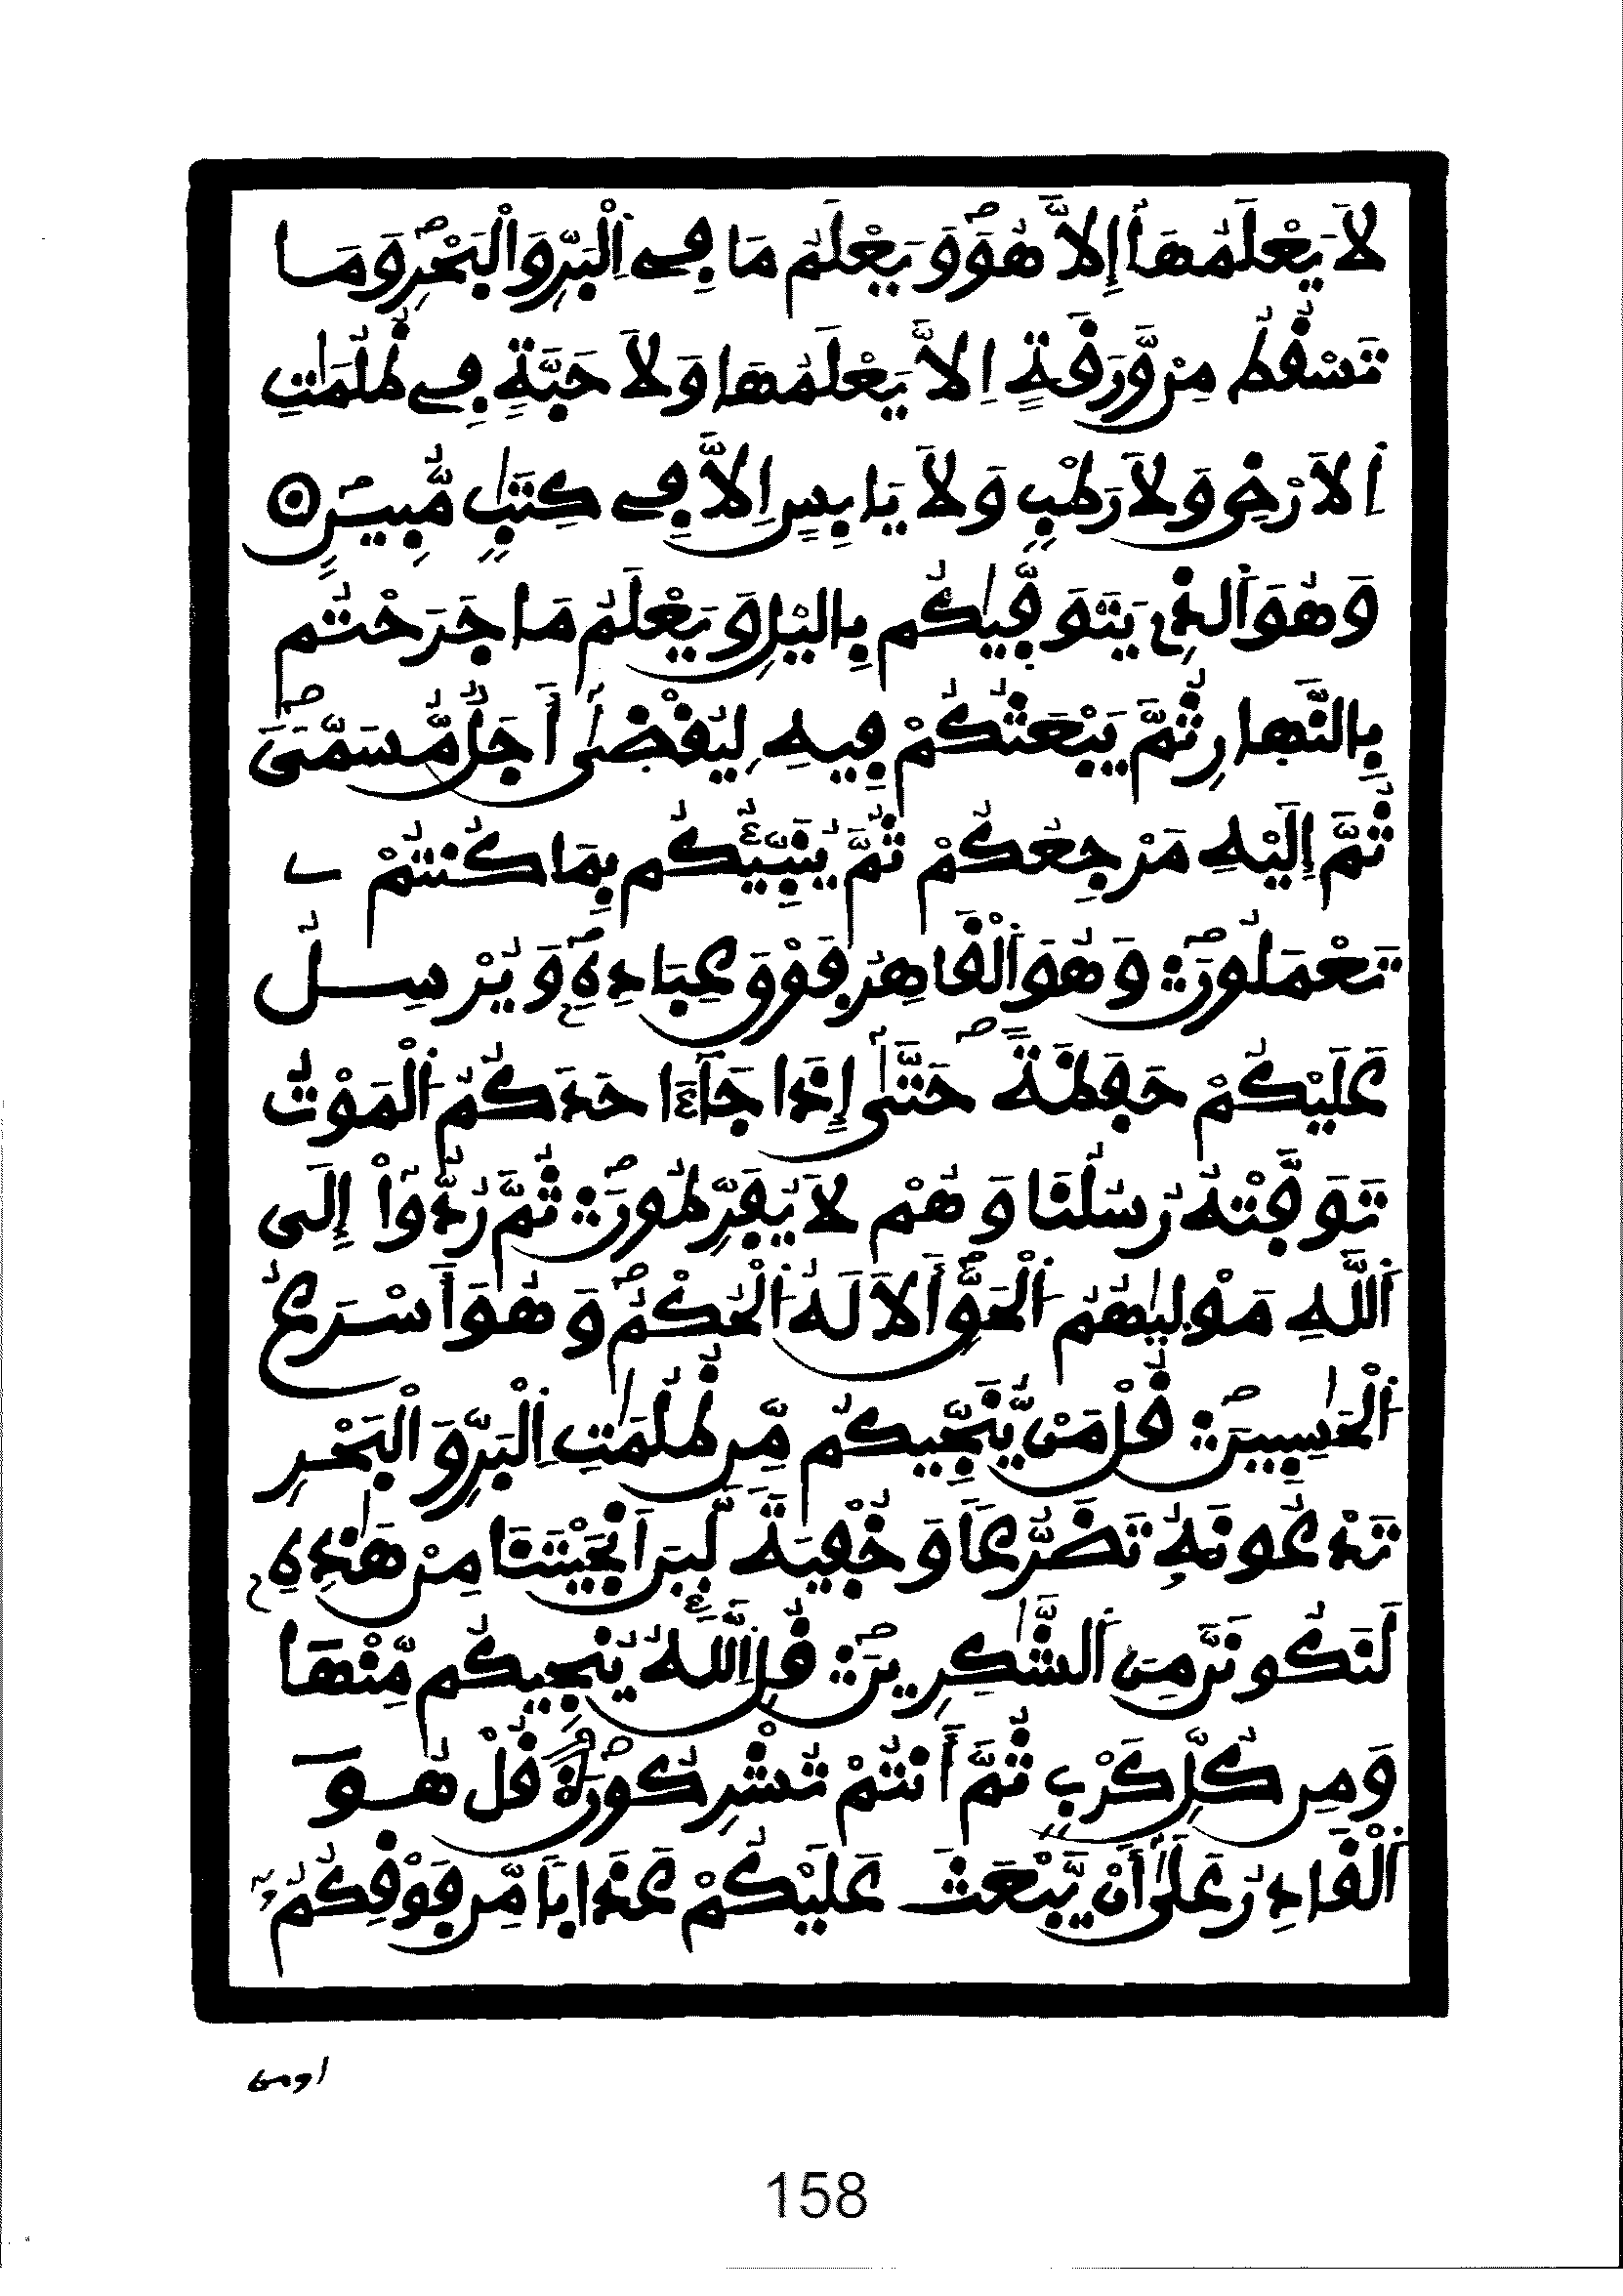 لَا يَعْلَمُهَا إِلَّا هُوَ وَيَعْلَمُ مَا فِے اِلْبَرِّ وَالْبَحْرِ وَمَا
تَسْقُطُ مِنْ وَّرَقَةٍ اِلَّا يَعْلَمُهَا وَلَا حَبَّةٍ فِے ظُلُمَٰتِ
اِلَارْضِ وَلَا رَطْبٍ وَلَا يَابِسٍ اِلَّا فِے كِتَٰبٍ مُّبِينٍ
وَهُوَ اَلذِے يَتَوَفّٰيكُم بِاليْلِ وَيَعْلَمُ مَا جَرَحْتُم
بِالنَّهارِ ثُمَّ يَبْعَثُكُمْ فِيهِ لِيُقْضٰىٓ أَجَلٌ مُّسَمًّى
ثُمَّ إِلَيْهِ مَرْجِعُكُمْ ثُمَّ يُنَبِّئُكُم بِمَا كُنتُمْ
تَعْمَلُونَ وَهُوَ اَلْقَاهِرُ فَوْقَ عِبَادِهِ وَيُرْسِلُ
عَلَيْكُمْ حَفَظَةً حَتَّىٰٓ إِذَا جَآءَ احَدَكُمُ اَلْمَوْتُ
تَوَفَّتْهُ رُسُلُنَا وَهُمْ لَا يُفَرِّطُونَ ثُمَّ رُدُّوٓاْ إِلَى
اَللَّهِ مَوْلٰيهُمُ اَلْحَقِّ أَلَا لَهُ اَلْحُكْمُ وَهُوَ أَسْرَعُ
اَلْحَٰسِبِينَ قُلْ مَنْ يُّنَجِّيكُم مِّن ظُلُمَٰتِ اِلْبَرِّ وَالْبَحْرِ
تَدْعُونَهُ تَضَرُّعًا وَخُفْيَةً لَّئِنَ اَنجَيْتَنَا مِنْ هَٰذِهِ
لَنَكُونَنَّ مِنَ اَلشَّٰكِرِينَ قُلِ اِللَّهُ يُنجِيكُم مِّنْهَا
وَمِن كُلِّ كَرْبٍ ثُمَّ أَنتُمْ تُشْرِكُونَ قُلْ هُوَ
اَلْقَادِرُ عَلَىٰٓ أَنْ يَّبْعَثَ عَلَيْكُمْ عَذَابًا مِّن فَوْقِكُمُ
اومن
158